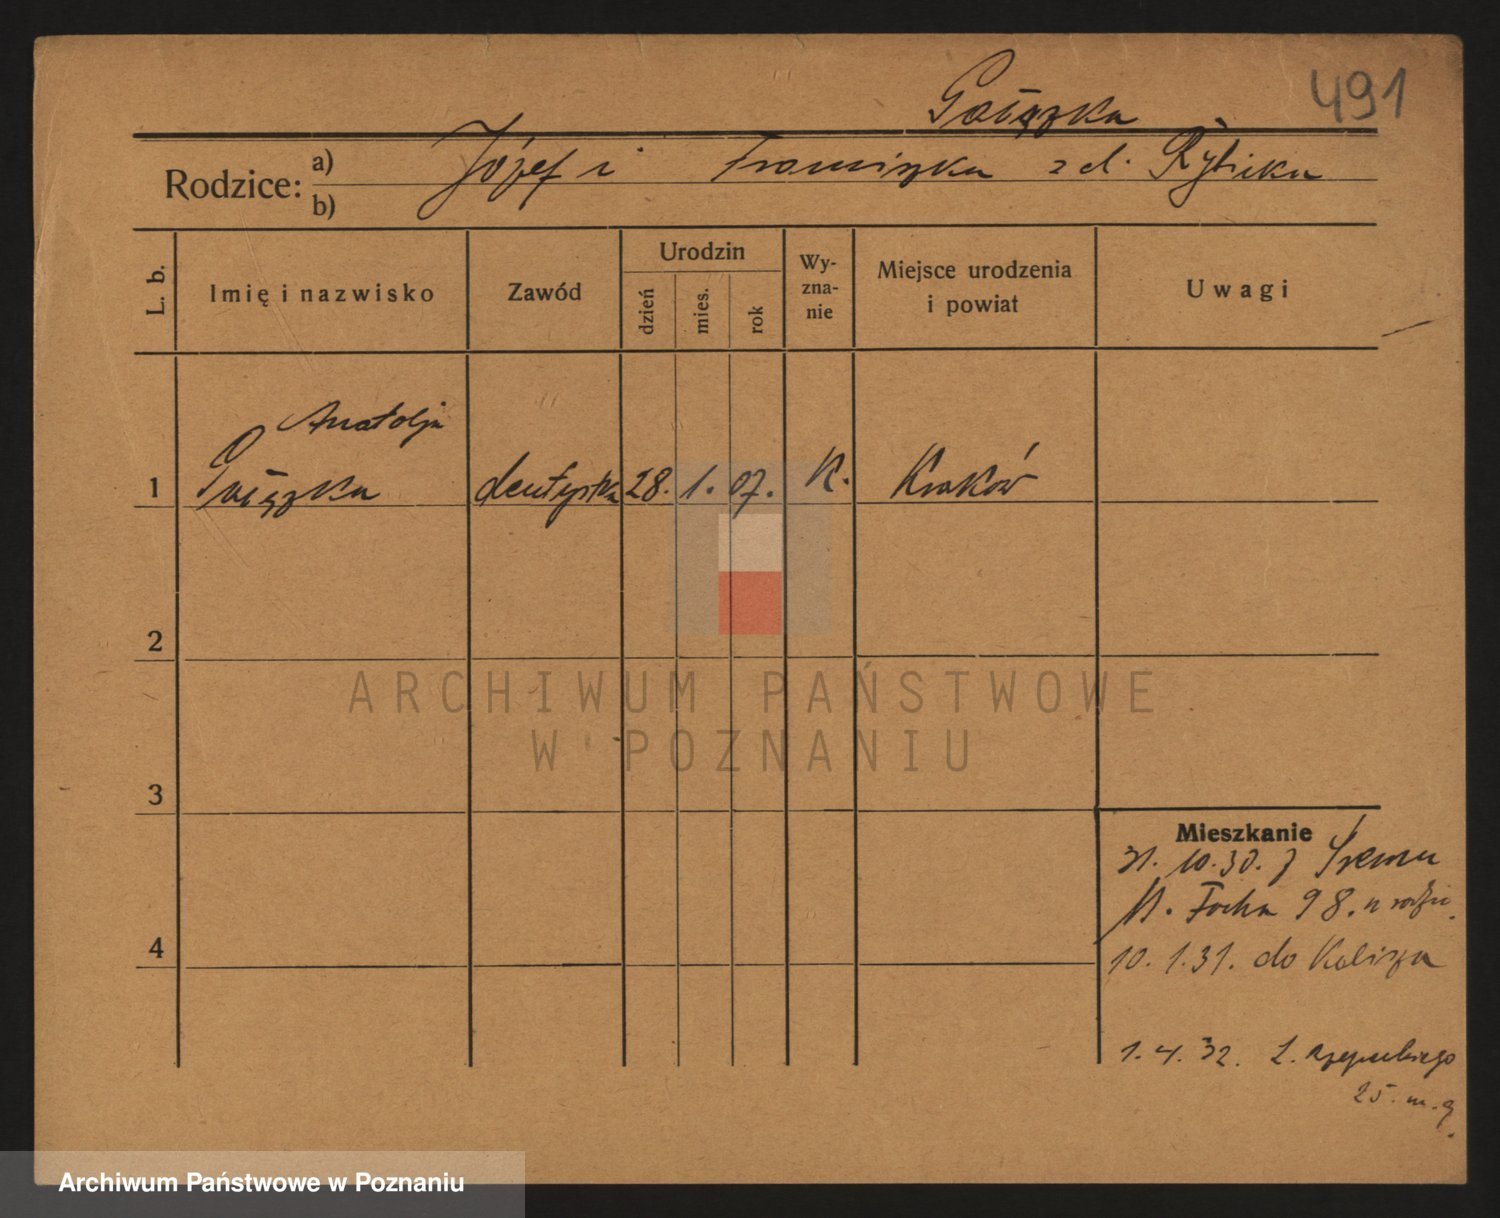 Gałązka 491
Rodzice: a) Józef i Franciszka z d. Rybicka
b)
L. b. Imię i nazwisko Zawód Urodzin dzień mies. rok Wy-zna-nie Miejsce urodzenia i powiat Uwagi
Anatolja
1 Gałązka dentystka 28. 1. 07. K. Kraków
2
3
4
Mieszkanie
31. 10. 30. z Śremu
M. Focha 98. u rodzic.
10. 1. 31. do Kalisza
1. 4. 32. Rzepeckiego
25. m. 9.
ARCHIWUM PAŃSTWOWE
W POZNANIU
Archiwum Państwowe w Poznaniu